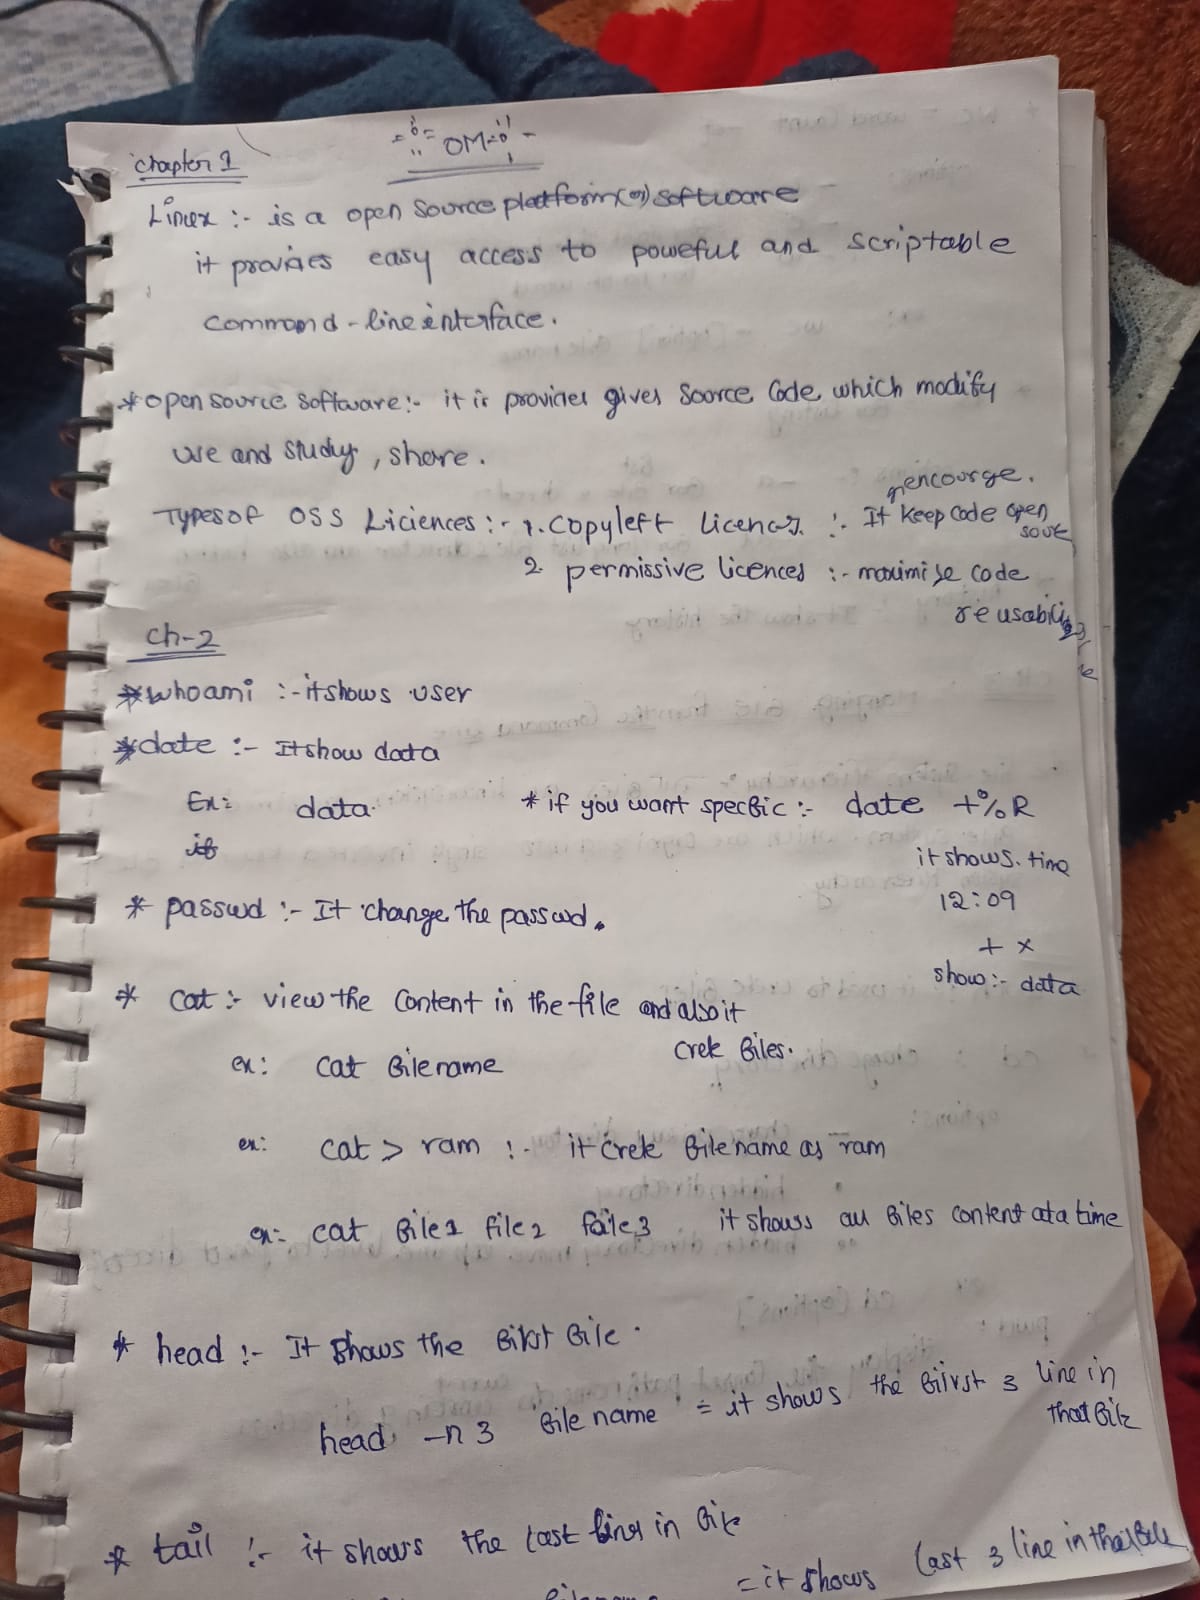 OM
Chapter 1
Linux :- is a open source platform (or) software
it provides easy access to poweful and scriptable
command-line interface.
* open source software:- it is provides gives source code, which modify
use and study, share.
encourge.
Types of OSS Liciences :- 1. copyleft licences. :- It keep code open
2. permissive licences :- maximise code
reusability
ch-2
* whoami :- it shows user
* date :- It show data
Ex: data * if you want specific :- date +%R
it shows. time
* passwd :- It change the passwd.
12:09
+ x
show :- data
* cat :- view the content in the file and also it
crek files.
ex: cat filename
ex: cat > ram :- it crek filename as ram
ex:- cat file1 file2 file3 it shows all files content at a time
* head :- It shows the first file.
head -n 3 file name = it shows the first 3 line in
that file
* tail :- it shows the last lines in file
= it shows last 3 line in that file